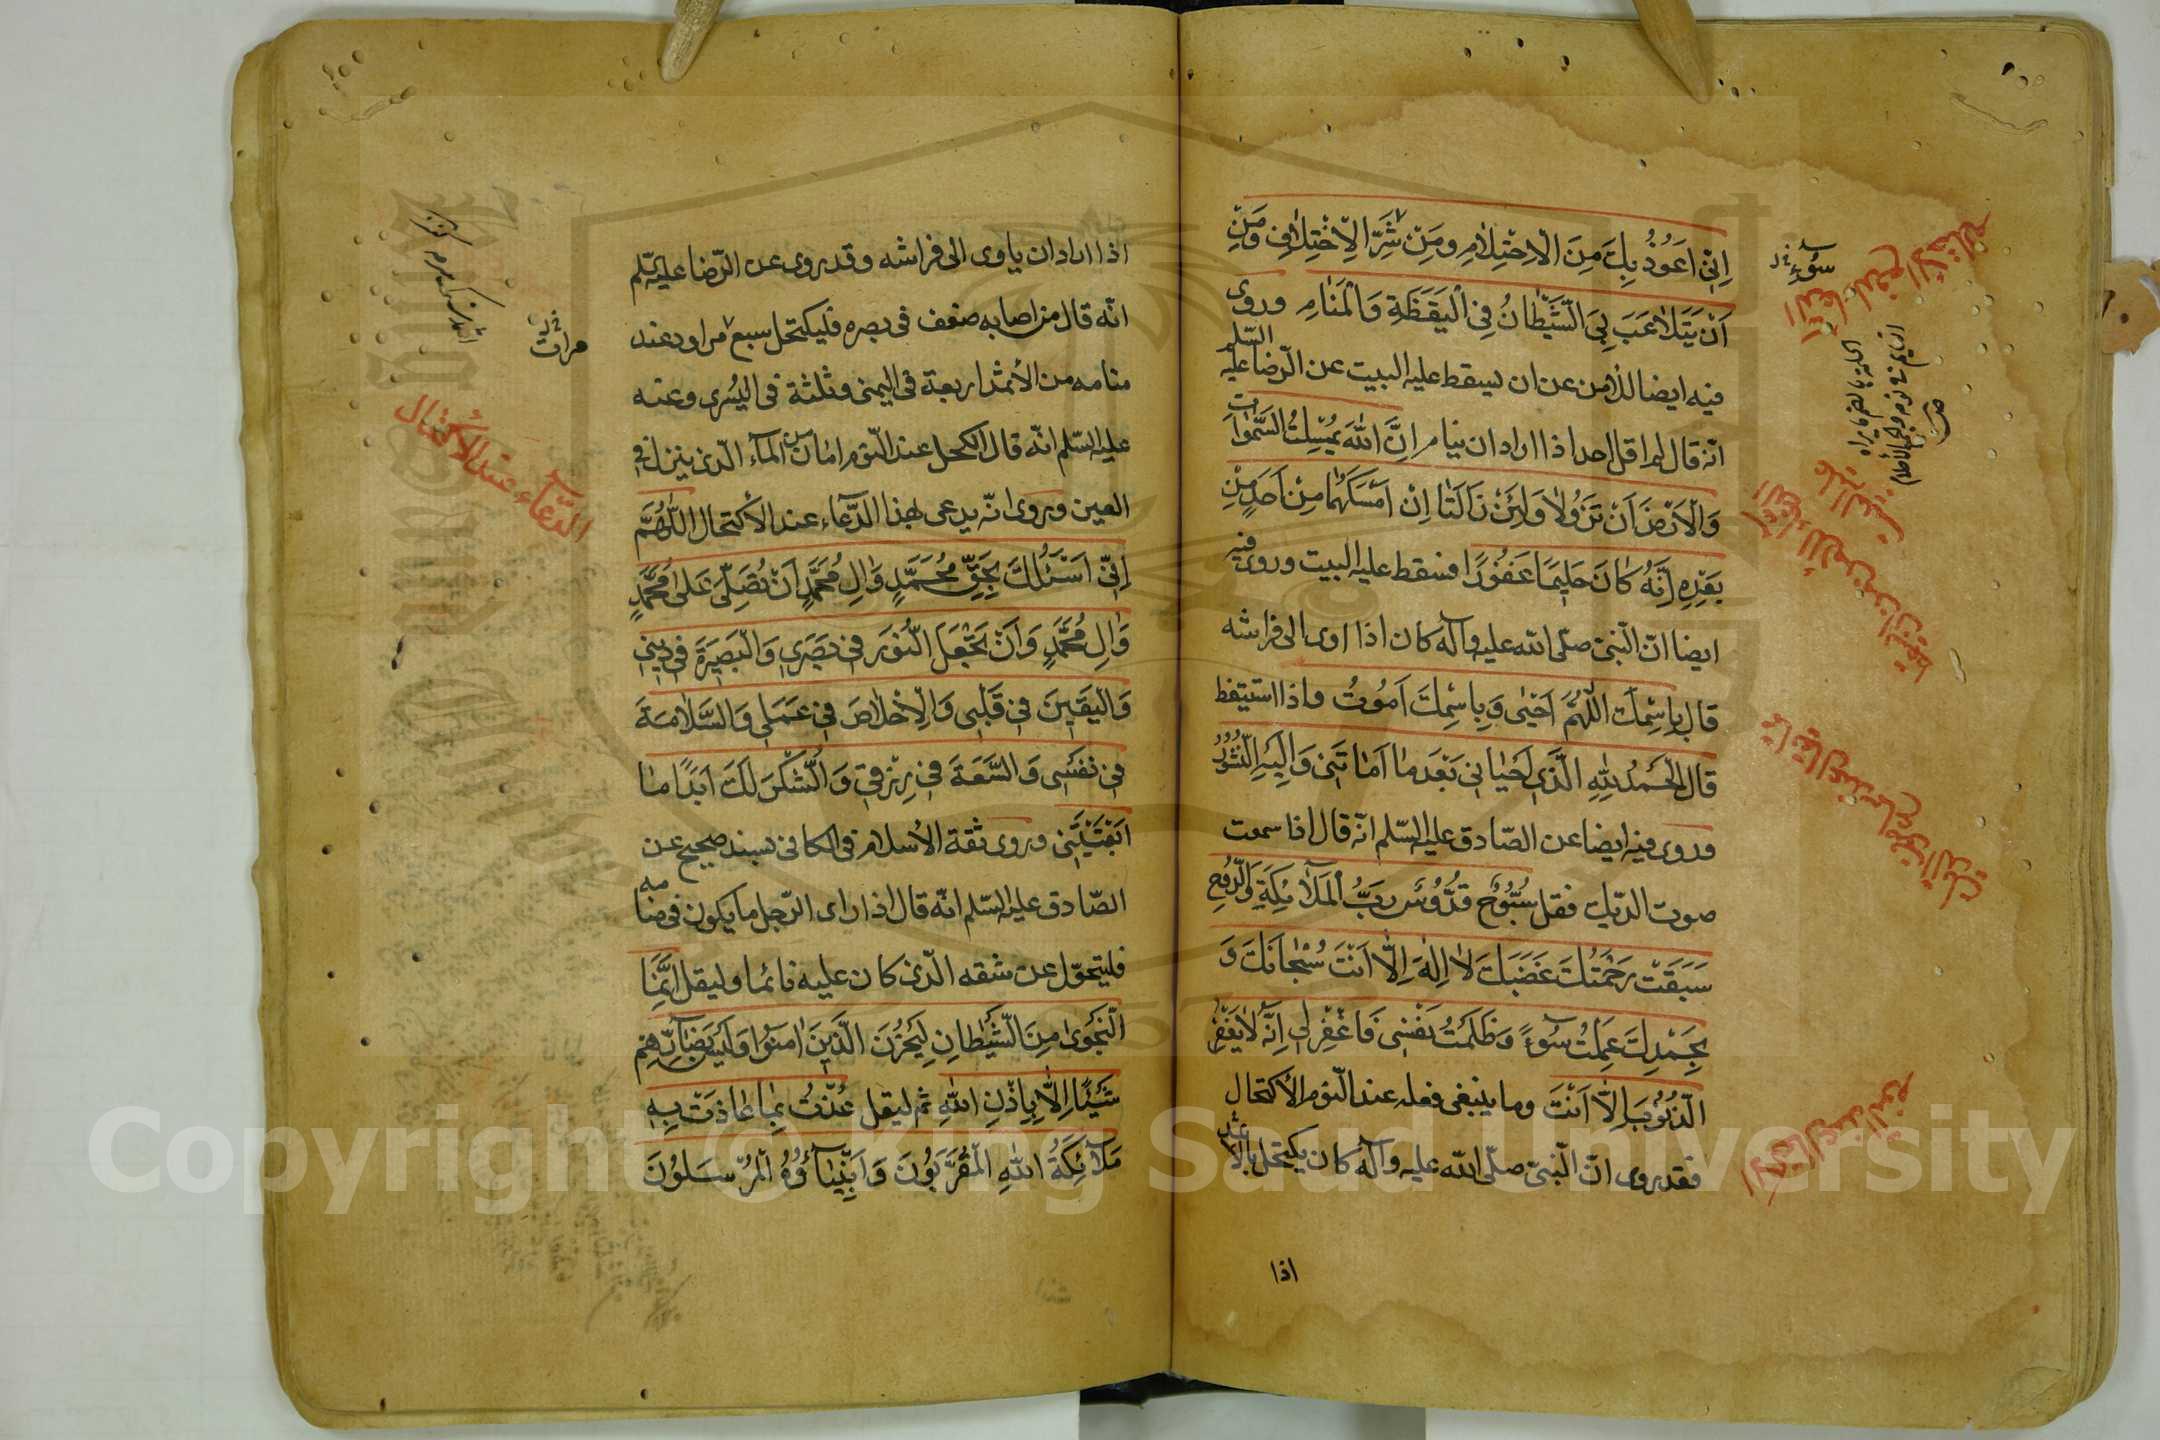 اِنّي اَعُوذُ بِكَ مِنَ الْاِحْتِلامِ ومِنْ شَرِّ الْاِحْتِلامِ وَمِنْ
اَنْ يَتَلاعَبَ بِيَ الشَّيْطانُ فِي الْيَقَظَةِ وَالْمَنامِ وروى
فيه ايضا للامن عن ان يسقط عليه البيت عن الرّضا عليه السّلم
انّه قال لم اقل احد اذا اراد ان ينام اِنَّ اللّٰهَ يُمْسِكُ السَّمٰوات
وَالْاَرْضَ اَنْ تَزُولا وَلَئِنْ زَالَتا اِنْ اَمْسَكَهُما مِنْ اَحَدٍ مِنْ
بَعْدِهِ اِنَّهُ كانَ حَليمًا غَفُورًا فسقط عليه البيت وروى فيه
ايضا انّ النّبىّ صلّى اللّه عليه وآله كان اذا اوى الى فراشه
قال بِاسْمِكَ اللّٰهُمَّ اَحْيٰى وَبِاسْمِكَ اَمُوتُ واذا استيقظ
قال الْحَمْدُ لِلّٰهِ الَّذي اَحْياني بَعْدَ ما اَماتَني وَاِلَيْهِ النُّشُورُ
وروى فيه ايضا عن الصّادق عليه السّلم انّه قال اذا سمعت
صوت الديك فقل سُبُّوحٌ قُدُّوسٌ رَبُّ الْمَلآئِكَةِ وَالرُّوحِ
سَبَقَتْ رَحْمَتُكَ غَضَبَكَ لا اِلٰهَ اِلّا اَنْتَ سُبْحانَكَ وَ
بِحَمْدِكَ عَمِلْتُ سُوءً وَظَلَمْتُ نَفْسي فَاغْفِرْ لي اِنَّهُ لا يَغْفِرُ
الذُّنُوبَ اِلّا اَنْتَ وما ينبغى فعله عند النّوم الاكتحال
فقد روى انّ النّبىّ صلّى اللّه عليه وآله كان يكتحل بالاثمد
اذا
سُوءٍ
الاكتحال عند النوم
اذا اراد ان ياوى الى فراشه وقد روى عن الرّضا عليه السّلم
انّه قال من اصابه ضعف فى بصره فليكتحل سبع مراود عند
منامه من الأثمد اربعة فى اليمنى وثلثة فى اليُسرى وعنه
عليه السّلم انّه قال الكحل عند النّوم امان من المآء الّذى ينزل فى
العين وروى انّه يدعى بهذا الدّعآء عند الاكتحال اللّٰهُمَّ
اِنّي اَسْئَلُكَ بِحَقِّ مُحَمَّدٍ وَالِ مُحَمَّدٍ اَنْ تُصَلِّيَ عَلىٰ مُحَمَّدٍ
وَالِ مُحَمَّدٍ وَاَنْ تَجْعَلَ النُّورَ في بَصَري وَالْبَصيرَةَ في ديني
وَالْيَقينَ في قَلْبي وَالْاِخْلاصَ في عَمَلي وَالسَّلامَةَ
في نَفْسي وَالسَّعَةَ في رِزْقي وَالشُّكْرَ لَكَ اَبَدًا ما
اَبْقَيْتَني وروى ثقة الاسلام فى الكافى بسند صحيح عن
الصّادق عليه السّلم انّه قال اذا راى الرّجل ما يكون فى منامه
فليتحوّل عن شقه الّذى كان عليه نائما وليقل اِنَّمَا
النَّجْوىٰ مِنَ الشَّيْطانِ لِيَحْزُنَ الَّذينَ اٰمَنُوا وَلَيْسَ بِضآرِّهِمْ
شَيْئًا اِلّا بِاِذْنِ اللّٰهِ ثم ليقل عُذْتُ بِما عاذَتْ بِهِ
مَلآئِكَةُ اللّٰهِ الْمُقَرَّبُونَ وَاَنْبِيآؤُهُ الْمُرْسَلُونَ
مرات
الدّعآء عند الاكتحال
Copyright © King Saud University